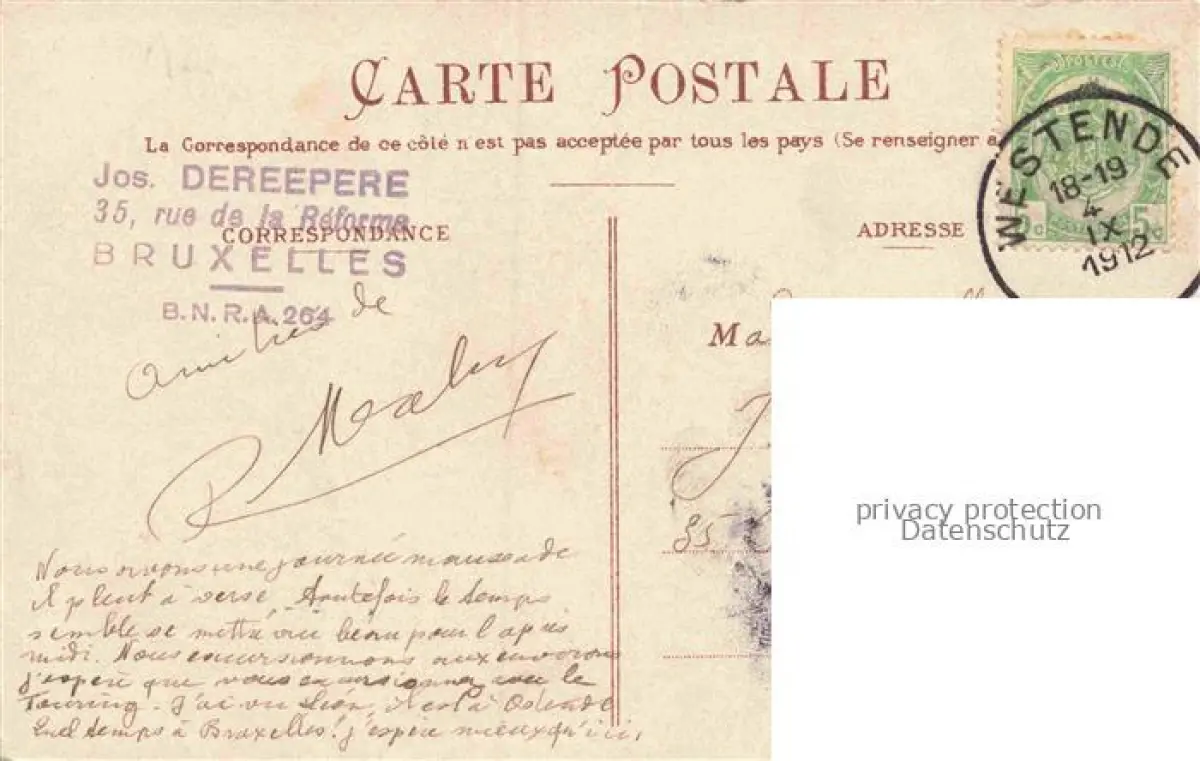 CARTE POSTALE
La Correspondance de ce côté n'est pas acceptée par tous les pays (Se renseigner à
Jos. DEREEPERE
35, rue de la Réforme
CORRESPONDANCE
BRUXELLES
B.N.R.A. 264
ADRESSE
POSTES
5c
WESTENDE
18-19
4
IX
1912
Ma
35
privacy protection
Datenschutz
de
Nous avons une journée maussade
il pleut à verse, toutefois le temps
semble se mettre au beau pour l'après
midi. Nous excursionnons aux environs
j'espère que vous excursionnez avec le
Touring. J'ai vu à Ostende
Quel temps à Bruxelles! j'espère mieux qu'ici,